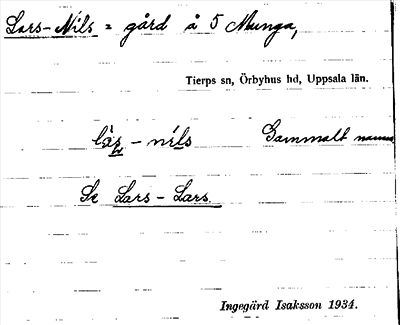 Lars-Nils = gård å 5 Munga,
Tierps sn, Örbyhus hd, Uppsala län.
làs - níls Gammalt namn
Se Lars - Lars.
Ingegärd Isaksson 1934.